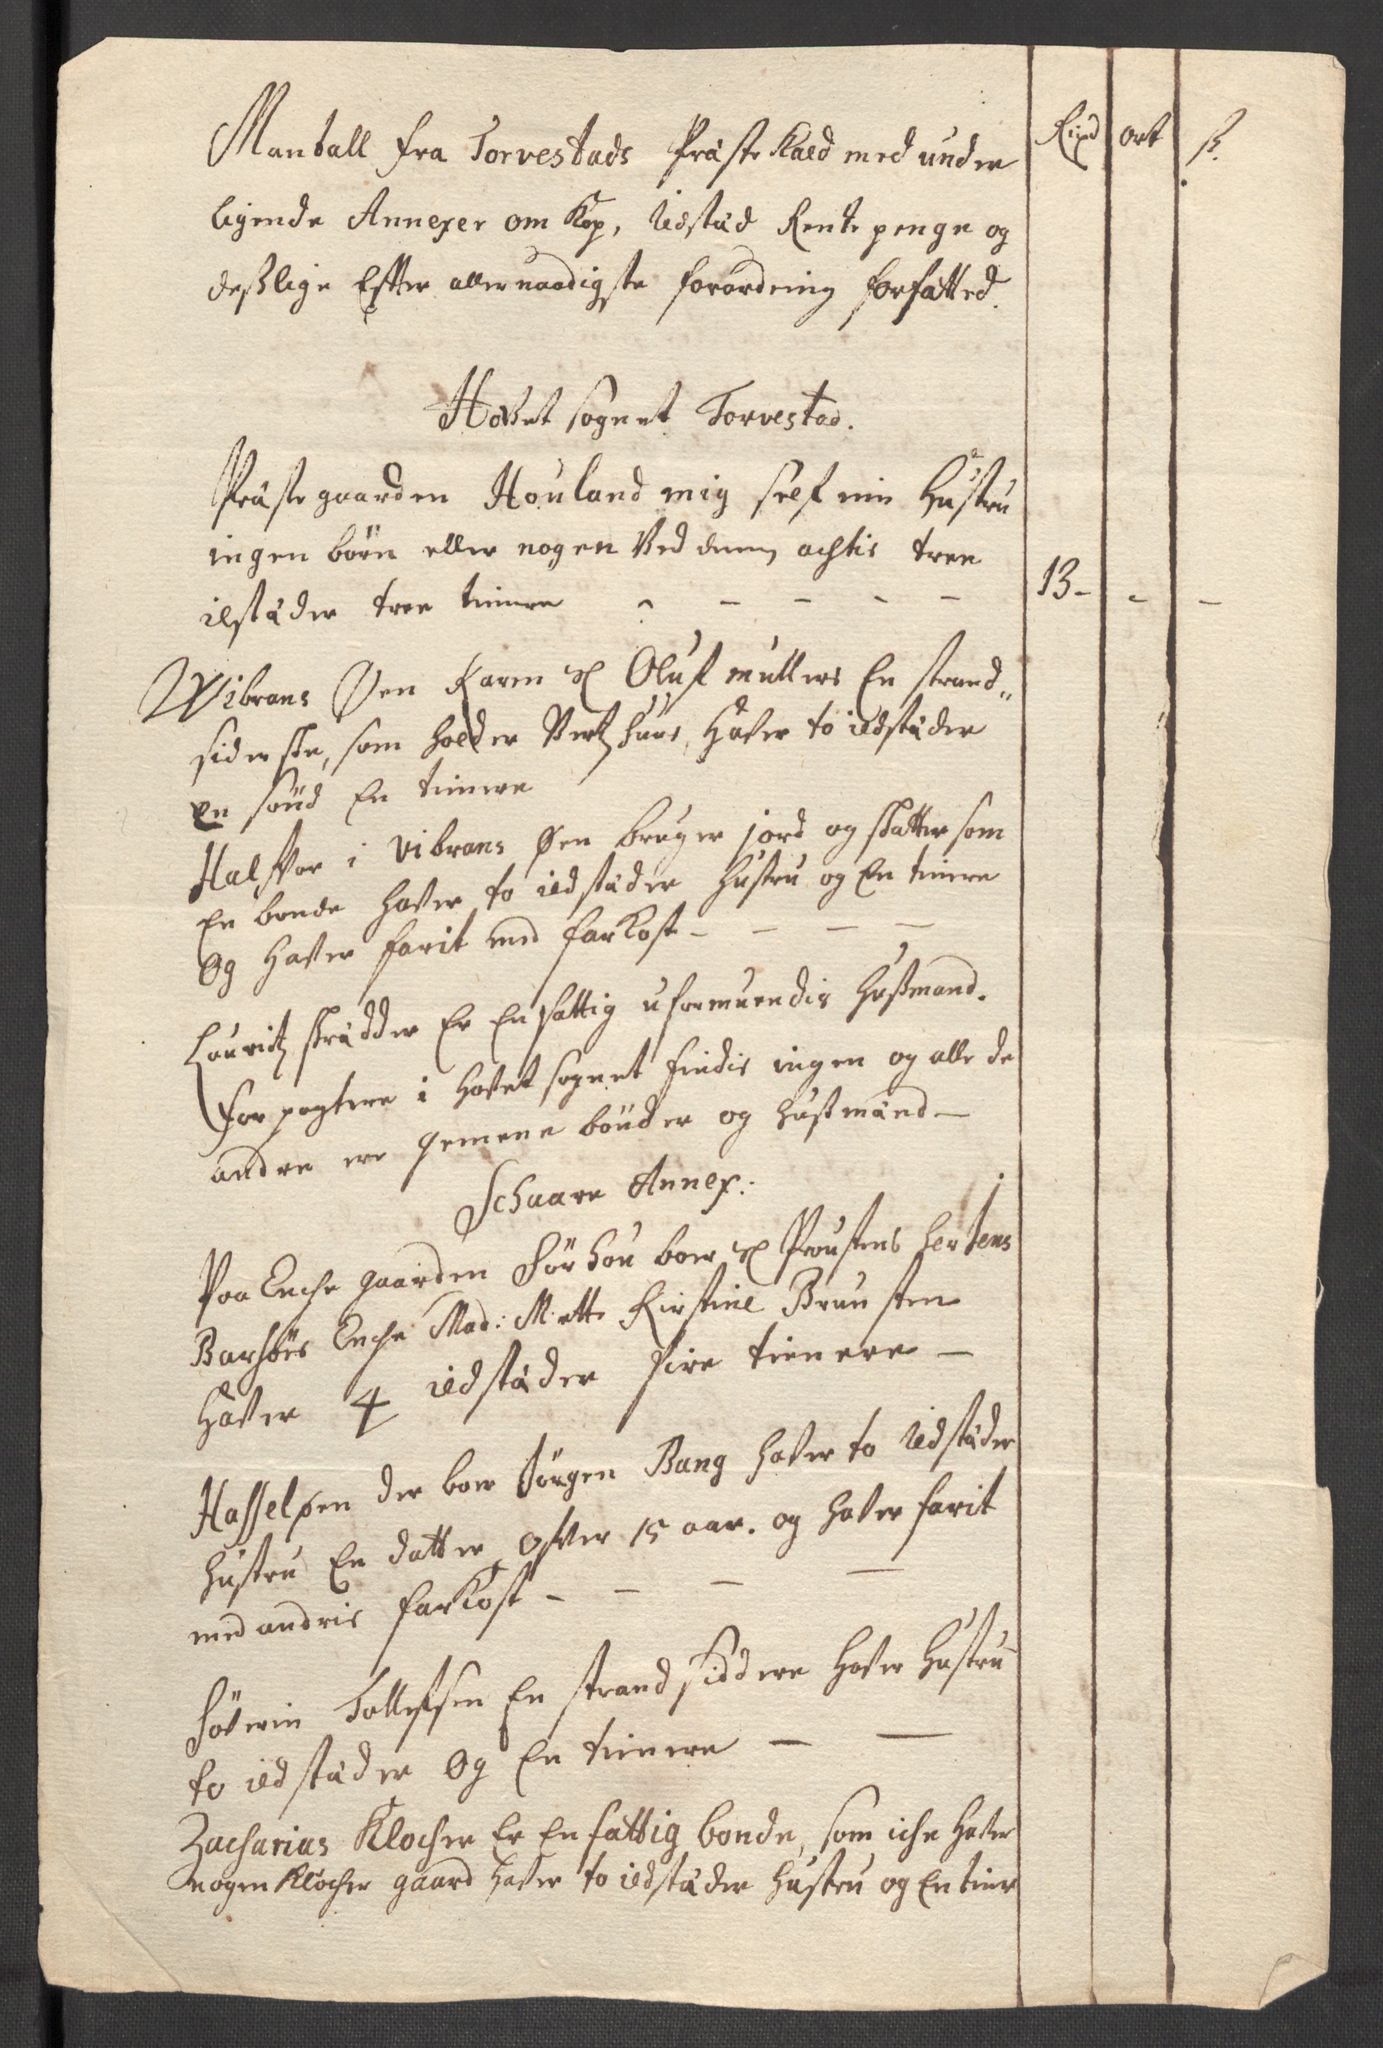 Rixd ort ß.
Mantall fra Torvestads Præste Kald med under
ligende Annexer om Kop, Ildstæd Rente penge og
desslige Efter allernaadigste forordning forfatted.
Hovet sognet Torvestad.
Præstegaarden Houland mig self min Hustru
ingen börn eller nogen Ved achtis tree
ilstæder tree tienere - - - - - 13 - - -
Wibrans Øen Karen sl Oluf mullers En strand„
siderske, som holder Vertzhuus, Hafver to ildstæder
En sön En tienere
Halffvor i Vibrans Øen bruger jord og skatter som
En bonde hafver to ildstæder Hustru og En tienere
Og Hafver farit med farkost - - - -
Lauridtz skrædder Er En fattig uformuendis Hussmand.
forpagtere i Hovet sognet findis ingen og alle de
andre ere gemene bönder og husmænd -
Schaare Annex:
Paa Enche gaarden Sörhou boer sl Proustens her Jens
Barhörs Enche Mad: Mette Kirstine Brunsten
Hafver 4 ildstæder fire tienere -
Hasseløen der boer Jörgen Bang hafver to Ildstæder
Hustru En datter ofver 15 aar. og hafver farit
med andris farkost - - - -
Söverin Tollefsen En strandsiddere hafver Hustru
to ildstæder Og En tienere - -
Zacharias Klocher Er En fattig bonde, som iche hafver
nogen Klocher gaard hafver to ildstæder Hustru og En tiener